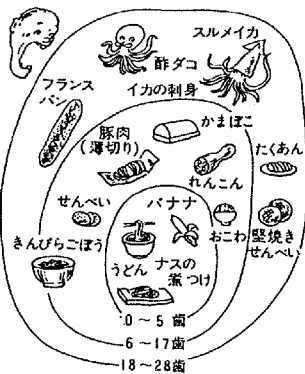 スルメイカ
酢ダコ
イカの刺身
フランス
パン
かまぼこ
豚肉
(薄切り)
たくあん
れんこん
せんべい
バナナ
きんぴらごぼう
おこわ
堅焼き
せんべい
うどん
ナスの
煮つけ
0～5歯
6～17歯
18～28歯